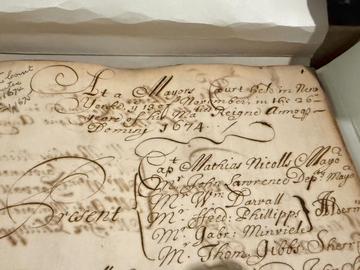 At a Mayors Court held in New
Yorke, ye 13th November, in the 26
years of his Matis Reigne Annoqe
Domini 1674.
Present
Capt Mathias Nicolls Mayo
Mr John Lawrence Depty Mayo
Mr Wm Darvall
Mr ffred: Phillipps
Mr Gabr: Minvielle
Alder
Mr Thom: Gibbs Sherr